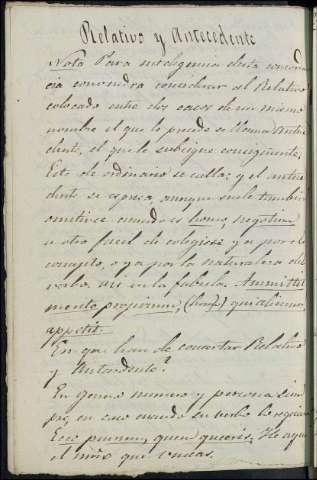 Relativo y Antecedente
Nota Para inteligencia desta concordan
cia convendra considerar al Relativo
colocado entre dos casos de un mismo
nombre el que le precede se llama Antece
dente, el que le subsigue consiguiente,
Este de ordinario se calla; y el antece
dente se expresa, aunque suele tambien
omitirse cuando es homo, negotium
u otro facil de colegirse ya por el
conxto, o ya por la naturaleza del
verbo, ut in fabula. Ammittit
merito proprium, (homo) qui alienum
appetit.
En que han de concertar Relativo
y Antecedente?
En genero numero y persona siem
pre, en caso cuando su verbo lo requiere
Ecce puerum, quem queris, He aqui
el niño que buscas.